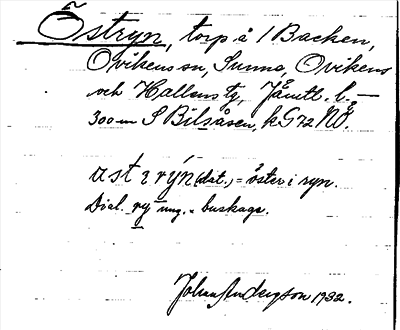 Östryn, torp å 1 Backen,
Ovikens sn, Sunne, Ovikens
och Hallens tg, Jämtl. l. –
300 m S Bilsåsen, k G 72 NÖ.
(dat.) = öster i ryn.
Dial. ry ung. = buskage.
Johan Andersson 1932.